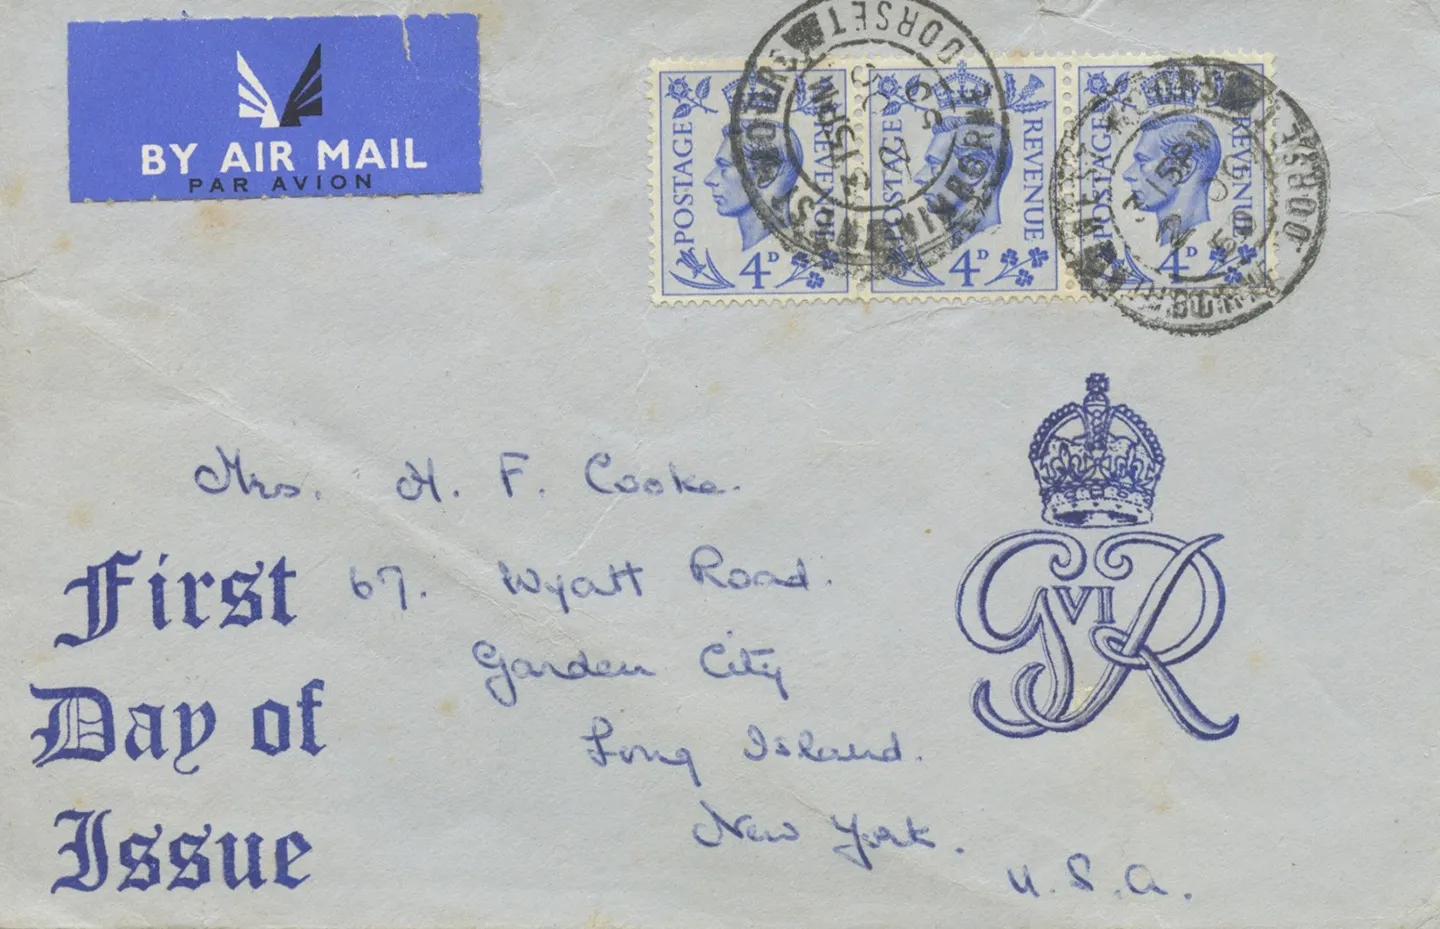 BY AIR MAIL
PAR AVION
POSTAGE REVENUE 4D
POSTAGE REVENUE 4D
POSTAGE REVENUE 4D
WIMBORNE DORSET
3 15 PM
2 OC
50
DORSET
Mrs. H. F. Cooke.
67. Wyatt Road.
Garden City
Long Island.
New York.
U.S.A.
First
Day of
Issue
G VI R